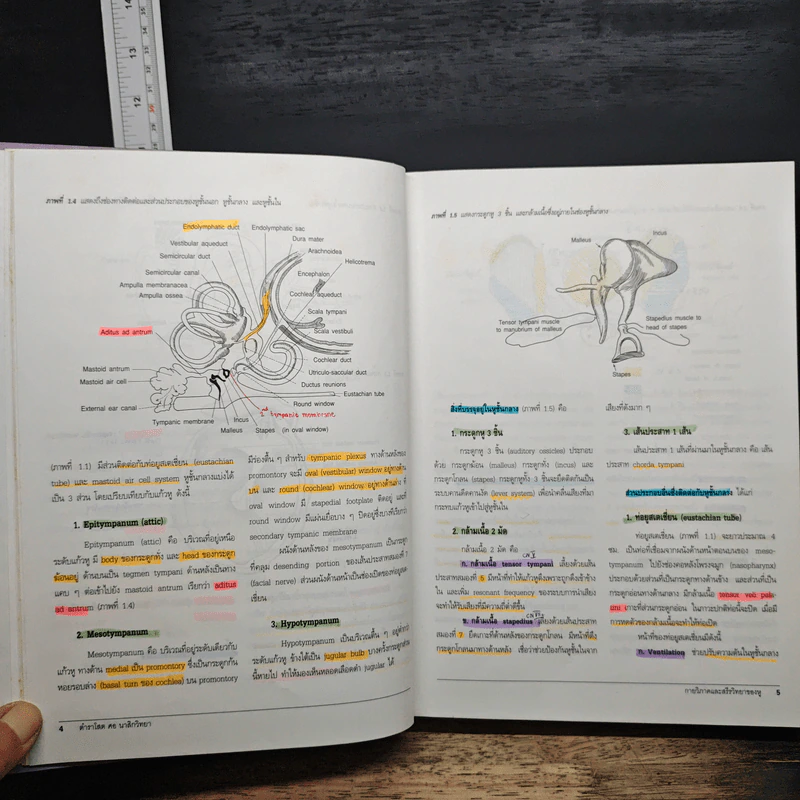 ภาพที่ 1.4 แสดงถึงช่องทางติดต่อและส่วนประกอบของหูชั้นนอก หูชั้นกลาง และหูชั้นใน
Endolymphatic duct
Endolymphatic sac
Vestibular aqueduct
Dura mater
Semicircular duct
Arachnoidea
Helicotrema
Semicircular canal
Encephalon
Ampulla membranacea
Cochlear aqueduct
Ampulla ossea
Scala tympani
Aditus ad antrum
Scala vestibuli
Cochlear duct
Mastoid antrum
Utriculo-saccular duct
Mastoid air cell
Ductus reunions
Eustachian tube
External ear canal
Round window
2nd tympanic membrane
Tympanic membrane
Incus
Malleus
Stapes (in oval window)
(ภาพที่ 1.1) มีส่วนติดต่อกับท่อยูสเตเชี่ยน (eustachian
tube) และ mastoid air cell system หูชั้นกลางแบ่งได้
เป็น 3 ส่วน โดยเปรียบเทียบกับแก้วหู ดังนี้
1. Epitympanum (attic)
Epitympanum (attic) คือ บริเวณที่อยู่เหนือ
ระดับแก้วหู มี body ของกระดูกทั่ง และ head ของกระดูก
ฆ้อนอยู่ ด้านบนเป็น tegmen tympani ด้านหลังเป็นทาง
แคบ ๆ ต่อเข้าไปยัง mastoid antrum เรียกว่า aditus
ad antrum (ภาพที่ 1.4)
2. Mesotympanum
Mesotympanum คือ บริเวณที่อยู่ระดับเดียวกับ
แก้วหู ทางด้าน medial เป็น promontory ซึ่งเป็นกระดูกก้น
หอยรอบล่าง (basal turn ของ cochlea) บน promontory
มีร่องตื้น ๆ สำหรับ tympanic plexus ทางด้านหลังของ
promontory จะมี oval (vestibular) window อยู่ทางด้าน
บน และ round (cochlear) window อยู่ทางด้านล่าง ที่
oval window มี stapedial footplate ติดอยู่ และที่
round window มีแผ่นเยื่อบาง ๆ ปิดอยู่ซึ่งบางทีเรียกว่า
secondary tympanic membrane
ผนังด้านหลังของ mesotympanum เป็นกระดูก
ที่คลุม desending portion ของเส้นประสาทสมองที่ 7
(facial nerve) ส่วนผนังด้านหน้าเป็นช่องเปิดของท่อยูสเต-
เชี่ยน
3. Hypotympanum
Hypotympanum เป็นบริเวณตื้น ๆ อยู่ต่ำกว่า
ระดับแก้วหู ข้างใต้เป็น jugular bulb บางครั้งกระดูกส่วน
นี้หายไป ทำให้มองเห็นหลอดเลือดดำ jugular ได้
4 ตำราโสต ศอ นาสิกวิทยา
ภาพที่ 1.5 แสดงกระดูกหู 3 ชิ้น และกล้ามเนื้อซึ่งอยู่ภายในช่องหูชั้นกลาง
Malleus
Incus
Tensor tympani muscle
to manubrium of malleus
Stapedius muscle to
head of stapes
Stapes
สิ่งที่บรรจุอยู่ในหูชั้นกลาง (ภาพที่ 1.5) คือ
1. กระดูกหู 3 ชิ้น
กระดูกหู 3 ชิ้น (auditory ossicles) ประกอบ
ด้วย กระดูกฆ้อน (malleus) กระดูกทั่ง (incus) และ
กระดูกโกลน (stapes) กระดูกหูทั้ง 3 ชิ้นจะยึดติดกันเป็น
ระบบคานดีดคานงัด (lever system) เพื่อนำคลื่นเสียงที่มา
กระทบแก้วหูเข้าไปสู่หูชั้นใน
2. กล้ามเนื้อ 2 มัด
กล้ามเนื้อ 2 มัด คือ
CN V
ก. กล้ามเนื้อ tensor tympani เลี้ยงด้วยเส้น
ประสาทสมองที่ 5 มีหน้าที่ทำให้แก้วหูตึงเพราะถูกดึงรั้งเข้าข้าง
ใน และเพิ่ม resonant frequency ของระบบการนำเสียง
จะทำให้รับเสียงที่มีความถี่ต่ำดีขึ้น
CN VII
ข. กล้ามเนื้อ stapedius เลี้ยงด้วยเส้นประสาท
สมองที่ 7 ยึดเกาะที่ด้านหลังของกระดูกโกลน มีหน้าที่ดึง
กระดูกโกลนมาทางด้านหลัง เชื่อว่าช่วยป้องกันหูชั้นในจาก
เสียงที่ดังมาก ๆ
3. เส้นประสาท 1 เส้น
เส้นประสาท 1 เส้นที่ผ่านมาในหูชั้นกลาง คือ เส้น
ประสาท chorda tympani
ส่วนประกอบอื่นซึ่งติดต่อกับหูชั้นกลาง ได้แก่
1. ท่อยูสเตเชี่ยน (eustachian tube)
ท่อยูสเตเชี่ยน (ภาพที่ 1.1) จะยาวประมาณ 4
ซม. เป็นท่อที่เชื่อมจากผนังด้านหน้าตอนบนของ meso-
tympanum ไปยังช่องคอหลังโพรงจมูก (nasopharynx)
ประกอบด้วยส่วนที่เป็นกระดูกทางด้านข้าง และส่วนที่เป็น
กระดูกอ่อนทางด้านใน มีกล้ามเนื้อ tensor veli pala-
tini เกาะที่ส่วนกระดูกอ่อน ในภาวะปกติท่อนี้จะปิด เมื่อมี
การหดตัวของกล้ามเนื้อจะทำให้ท่อเปิด
หน้าที่ของท่อยูสเตเชี่ยนมีดังนี้
ก. Ventilation ช่วยปรับความดันในหูชั้นกลาง
กายวิภาคและสรีรวิทยาของหู 5
14
13
12